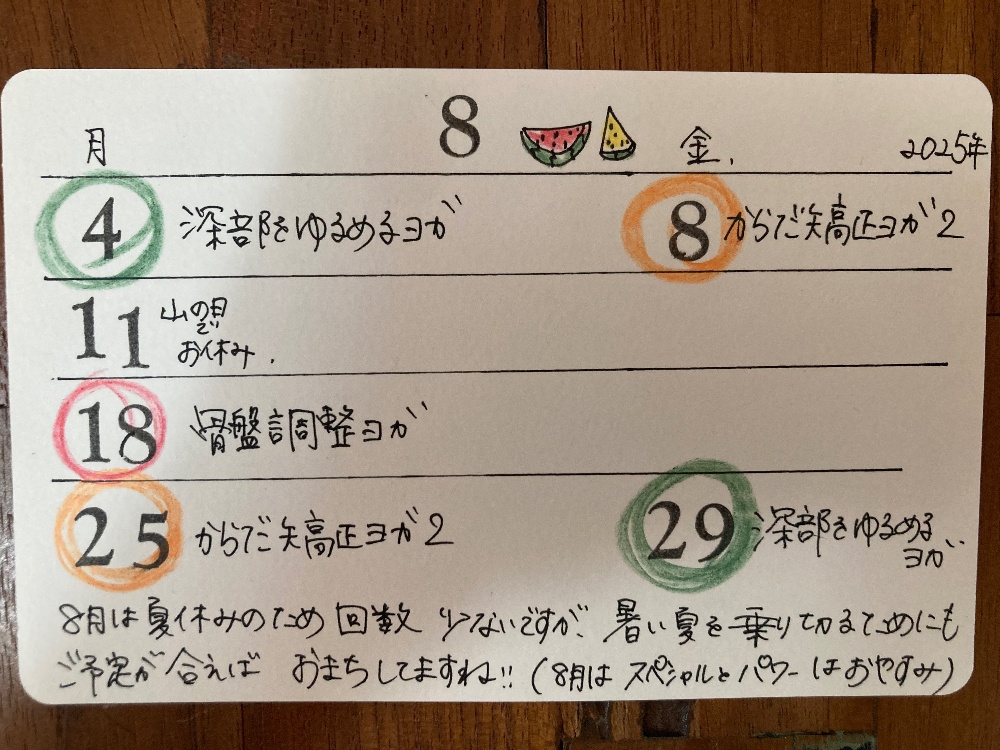 8
月 金. 2025年
4 深部をゆるめるヨガ 8 からだ矯正ヨガ2
11 山の日
で
お休み.
18 骨盤調整ヨガ
25 からだ矯正ヨガ2 29 深部をゆるめる
ヨガ
8月は夏休みのため 回数 少ないですが、暑い夏を乗り切るためにも
ご予定が合えば おまちしてますね!! (8月は スペシャルと パワー はおやすみ)